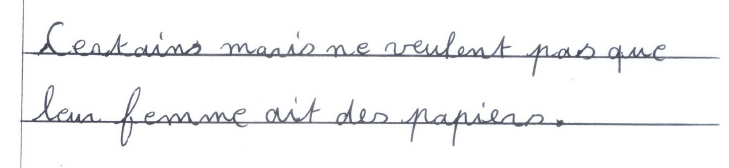 Certains maris ne veulent pas que
leur femme ait des papiers.